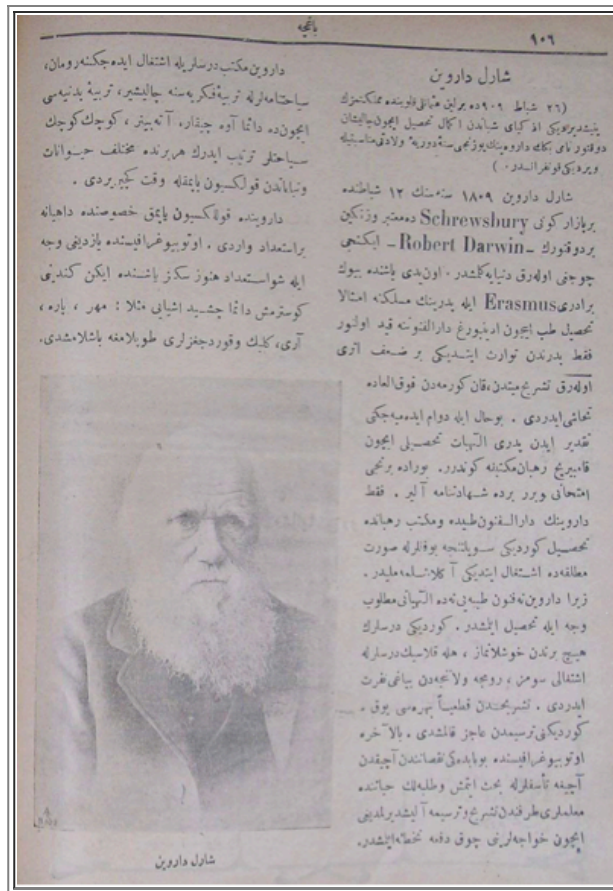 باغچه
٩٠٦
شارل داروین
(٢٦ شباط ٩٠٩ ده
تحصیل ایچون چالیشان
شارل داروین ١٨٠٩ سنه‌سنك ١٢ شباطنده
بر بازار كونی Schrewsbury ده معتبر و زنكین
بر دوقتورك ـ Robert Darwin ـ ایكنجی
چوجنی اوله‌رق دنیایه كلشدر . اون یدی یاشنده بیوك
برادری Erasmus ایله پدرینك مسلكنه امتثالا
تحصیل طب ایچون ادینبورغ دارالفنوننه قید اولنور
فقط پدرندن توارث ایتدیكی بر ضعف اثری
اوله‌رق تشریح میتدن، قان كورمه‌دن فوق العاده
تحاشی ایدردی . بو حال ایله دوام ایده‌میه‌جكی
تقدیر ایدن پدری الٓهیات تحصیلی ایچون
قامبریج رهبان مكتبنه كوندرر. بوراده برنجی
امتحانی ویرر برده شهادتنامه آلیر . فقط
داروینك دارالفنون طبیده و مكتب رهبانده
تحصیل كوردیكی سویلنجه بونلرله صورت
مطلقه‌ده اشتغال ایتدیكی آكلاشلمه‌ملیدر .
زیرا داروین نه فنون طبیه‌یی نه‌ده الٓهیاتی مطلوب
وجه ایله تحصیل ایتمشدر . كوردیكی درسلرك
هیچ برندن خوشلانماز ، هله قلاسیك درسلرله
اشتغالی سومز ، رومجه ولاتنجه‌دن بیاغی نفرت
ایدردی . تشریحدن قطعیاً بهره‌سی یوق ،
كوردیكنی ترسیمدن عاجز قالمشدی . بالآخره
اوتوبیوغرافیسنده بوبابده‌كی نقصانندن آجیقدن
آچیغه تأسفلرله بحث ایتمش وطلبه‌لك حیاتنده
معلملری طرفندن تشریح وترسیمه آلیشدیرلمدیغی
ایچون خواجه‌لرینی چوق دفعه تخطئه ایتمشدر.
داروین مكتب درسلریله اشتغال ایده‌جكنه رومان،
سیاحتنامه‌لرله تربیهٔ فكریه‌سنه چالیشیر، تربیهٔ بدنیه‌سی
ایچون‌ده دائما آوه چیقار، آته بینر ، كوچك كوچك
سیاحتلر ترتیب ایدرك هر برنده مختلف حیوانات
ونباتاتدن قولكسیون یاپمقله وقت كچیردی .
داروینده قوللكسیون یاپمق خصوصنده داهیانه
بر استعداد واردی . اوتوبیوغرافیسنده یازدیغی وجه
ایله شو استعداد هنوز سكز یاشنده ایكن كندینی
كوسترمش دائما چشید اشیایی مثلا : مهر ، پاره ،
آری، كلبك وقوردجغزلری طوپلامغه باشلامشدی.
شارل داروین